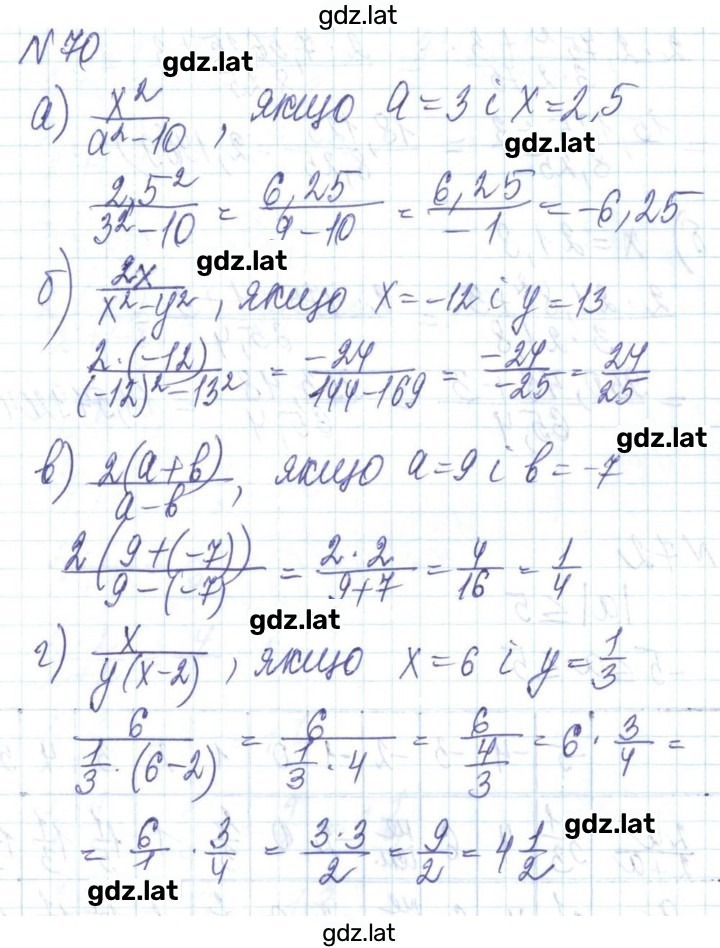 gdz.lat
N 70
gdz.lat
а) x²/(a²-10), якщо a = 3 і x = 2,5
gdz.lat
2,5²/(3²-10) = 6,25/(9-10) = 6,25/-1 = -6,25
gdz.lat
б) 2x/(x²-y²), якщо x = -12 і y = 13
2·(-12)/((-12)²-13²) = -24/(144-169) = -24/-25 = 24/25
gdz.lat
в) 2(a+b)/(a-b), якщо a = 9 і b = -7
2(9+(-7))/(9-(-7)) = 2·2/(9+7) = 4/16 = 1/4
gdz.lat
г) x/(y(x-2)), якщо x = 6 і y = 1/3
6/(1/3·(6-2)) = 6/(1/3·4) = 6/(4/3) = 6·3/4 =
= 6/1 · 3/4 = 3·3/2 = 9/2 = 4 1/2
gdz.lat
gdz.lat
gdz.lat